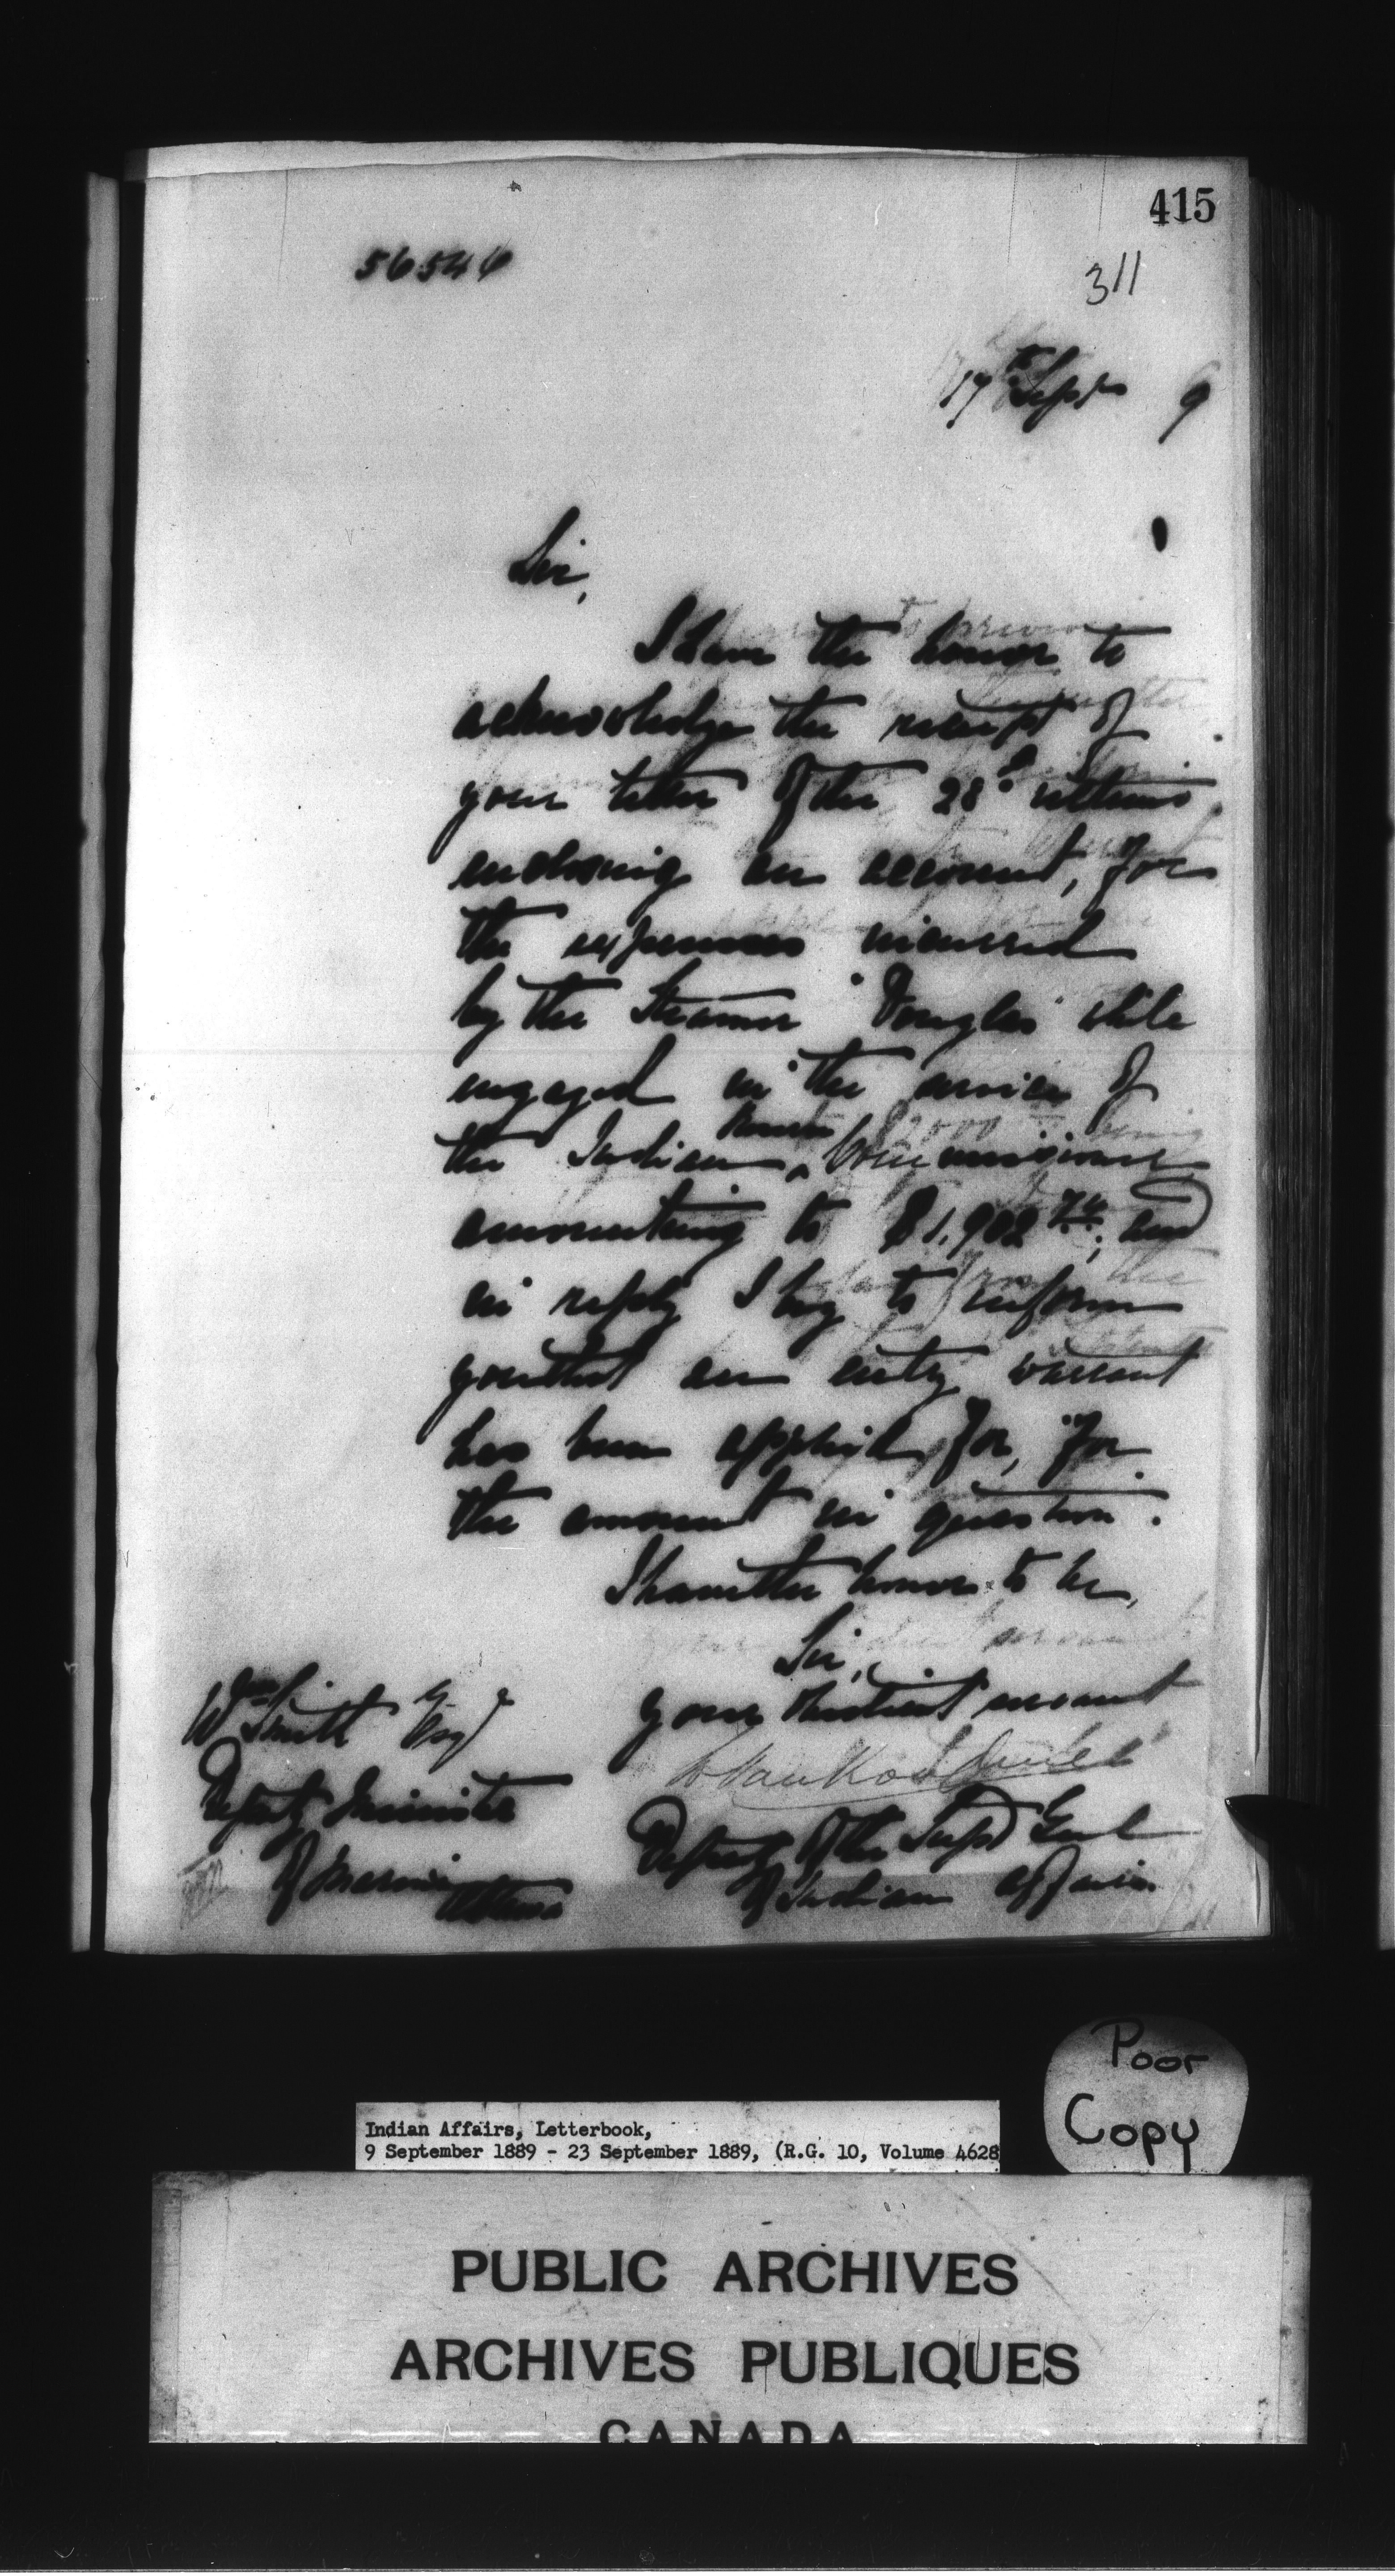 415
56546
311
17th Sept 9
Sir,
I have the honor to
acknowledge the receipt of
your letter of the 28° ultimo
enclosing an account, for
the expenses incurred
by the Steamer "Douglas" while
engaged in the service of
the Indian Reserve Commissioner
amounting to $1,902 74; and
in reply I beg to inform
you that an entry warrant
has been applied for, for
the amount in question.
I have the honor to be,
Sir,
your obedient servant
L Vankoughnet
Deputy of the Supt Genl
of Indian Affairs
Wm Smith Esqr
Deputy Minister
of Marine
Ottawa
Poor
Copy
Indian Affairs, Letterbook,
9 September 1889 - 23 September 1889, (R.G. 10, Volume 4628
PUBLIC ARCHIVES
ARCHIVES PUBLIQUES
CANADA